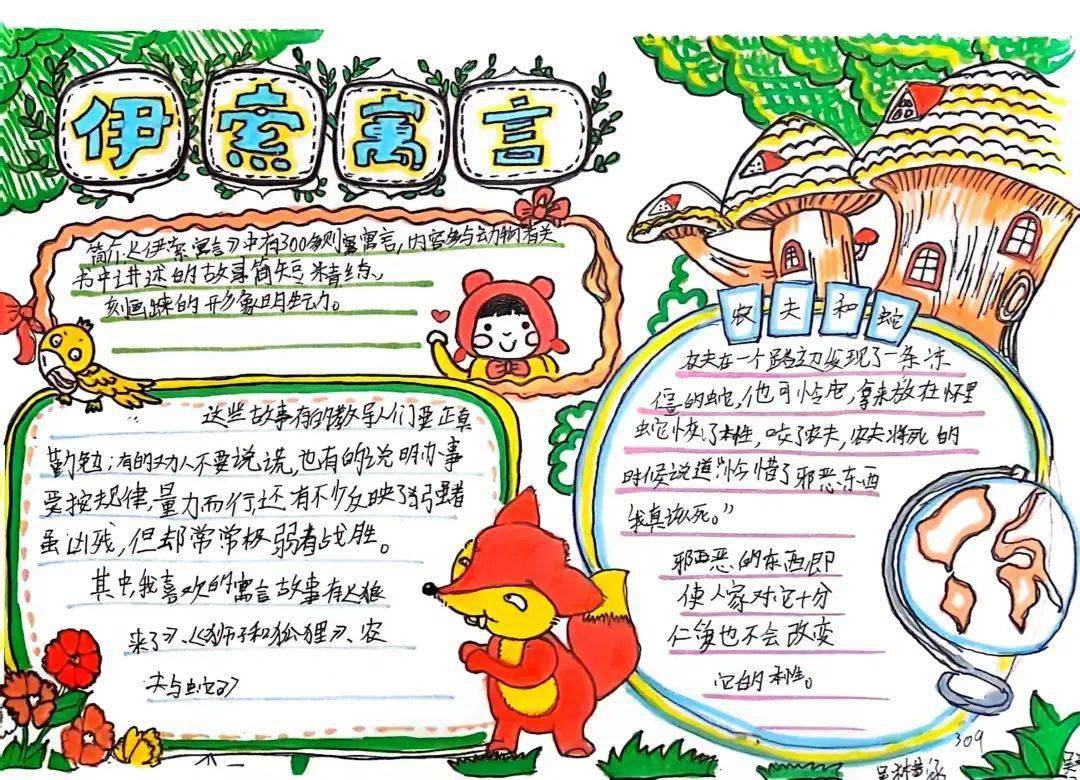 伊索寓言
简介《伊索寓言》中有300多则寓言,内容多与动物有关
书中讲述的故事简短精练,
刻画的形象明生动。
这些故事有的教导人们要正直
勤勉;有的劝人不要说谎,也有的说明办事
要按规律,量力而行;还有不少反映了强者
虽凶残,但却常常被弱者战胜。
其中,我喜欢的寓言故事有《狼
来了》、《狮子和狐狸》、农
夫与蛇》
农夫和蛇
农夫在一个路边发现了一条冻
僵的蛇,他可怜它,拿来放在怀里
蛇恢复了本性,咬了农夫,农夫将死的
时候说道"怜惜了邪恶东西
我真该死。"
邪恶的东西即
使人家对它十分
仁慈也不会改变
它的本性。
309